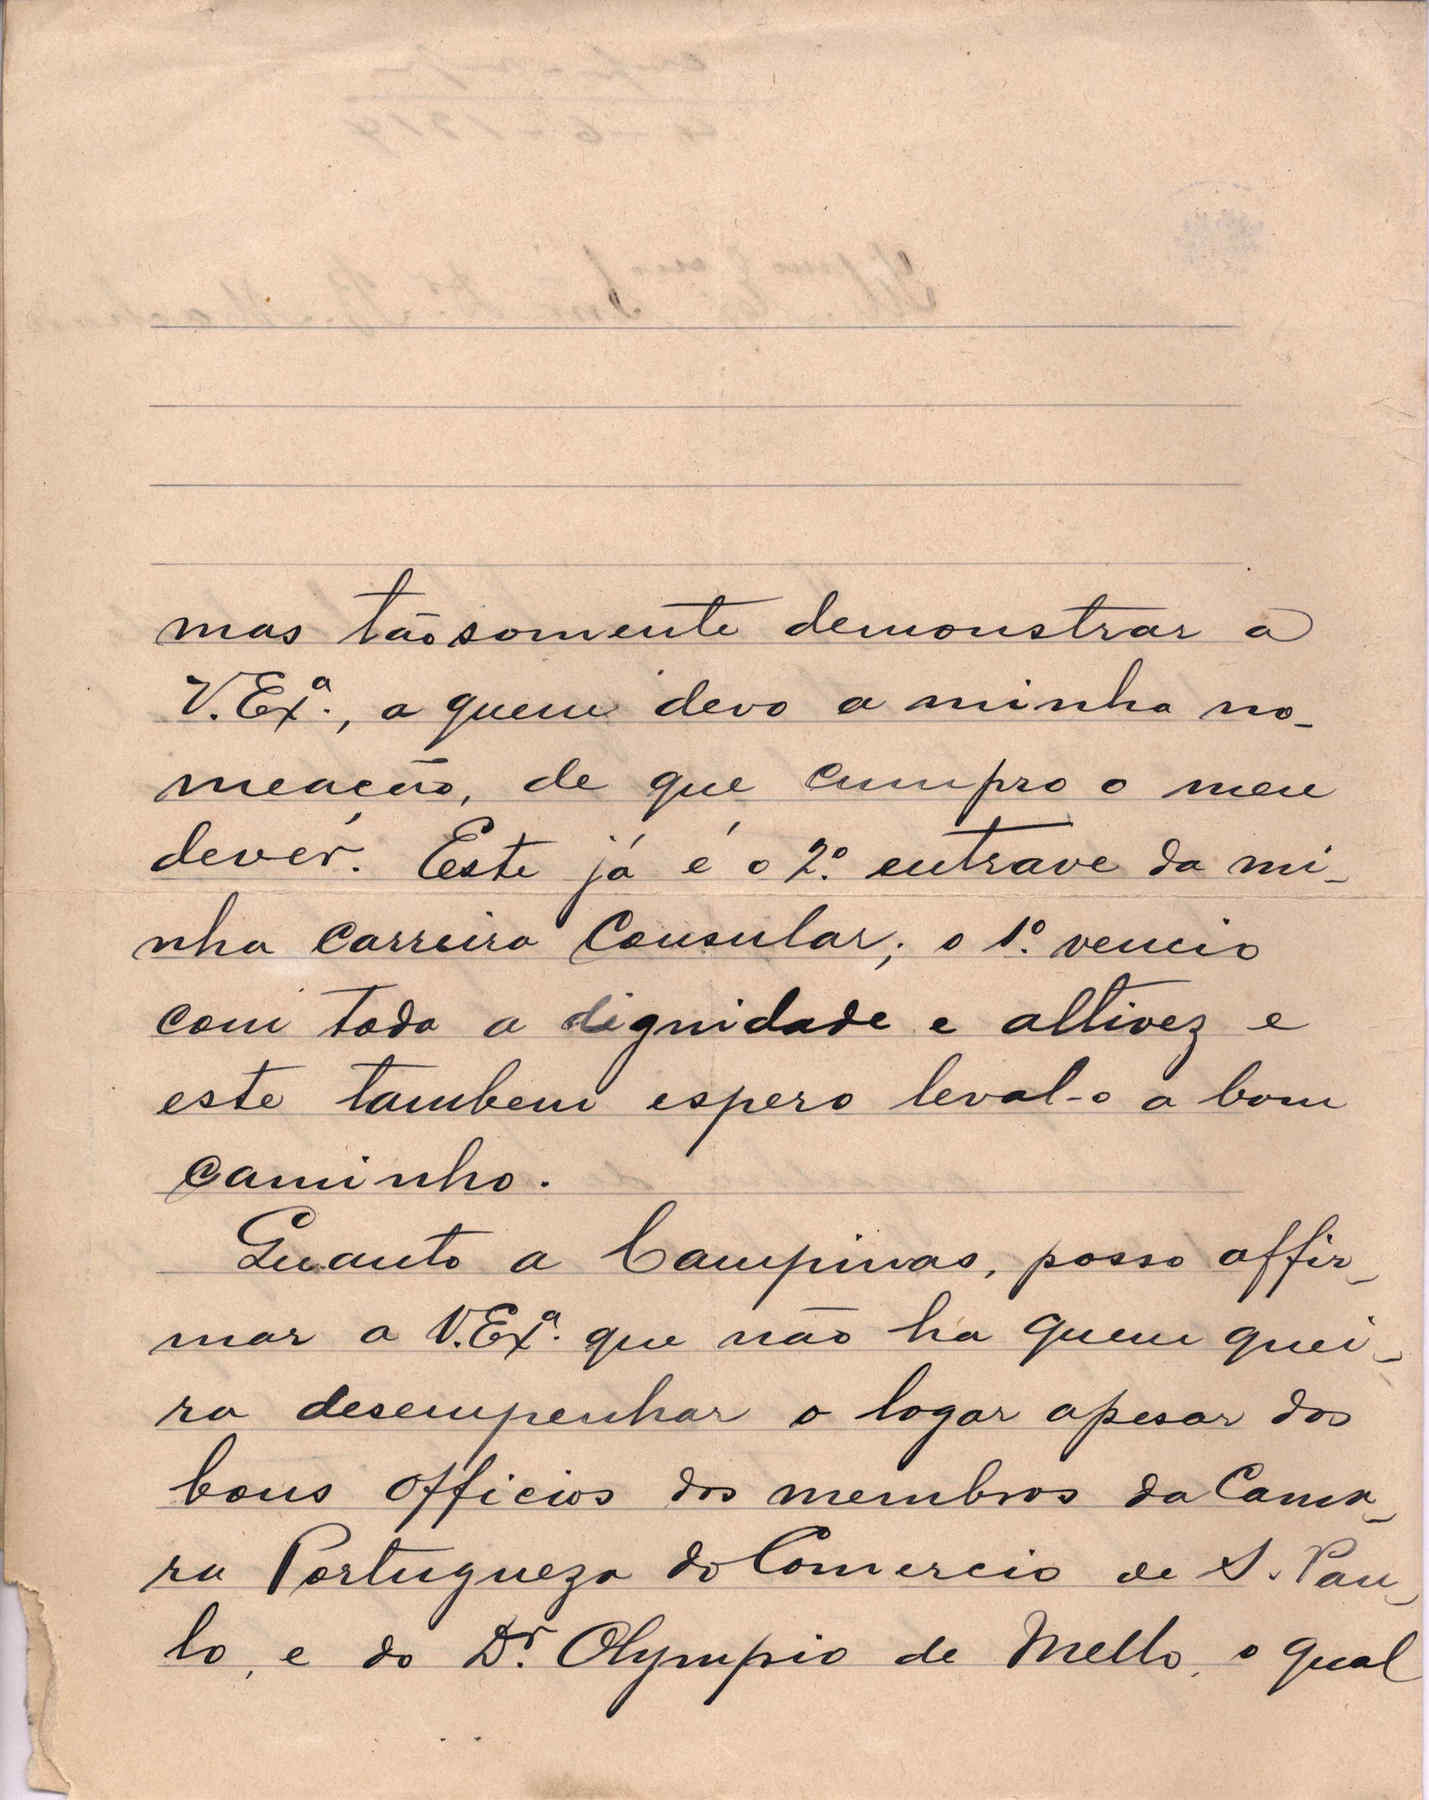 mas tãosomente demonstrar a
V. Exª., a quem devo a minha no-
meação, de que cumpro o meu
devêr. Este já é o 2º. entrave da mi-
nha carreira Consular; o 1º. vencio
com toda a dignidade e altivez e
este tambem espero leval-o a bom
caminho.
Quanto a Campinas, posso affir-
mar a V. Exª. que não ha quem quei-
ra desempenhar o logar apesar dos
bons officios dos membros da Cama-
ra Portugueza do Comercio de S. Pau-
lo, e do Dr. Olympio de Mello, o qual